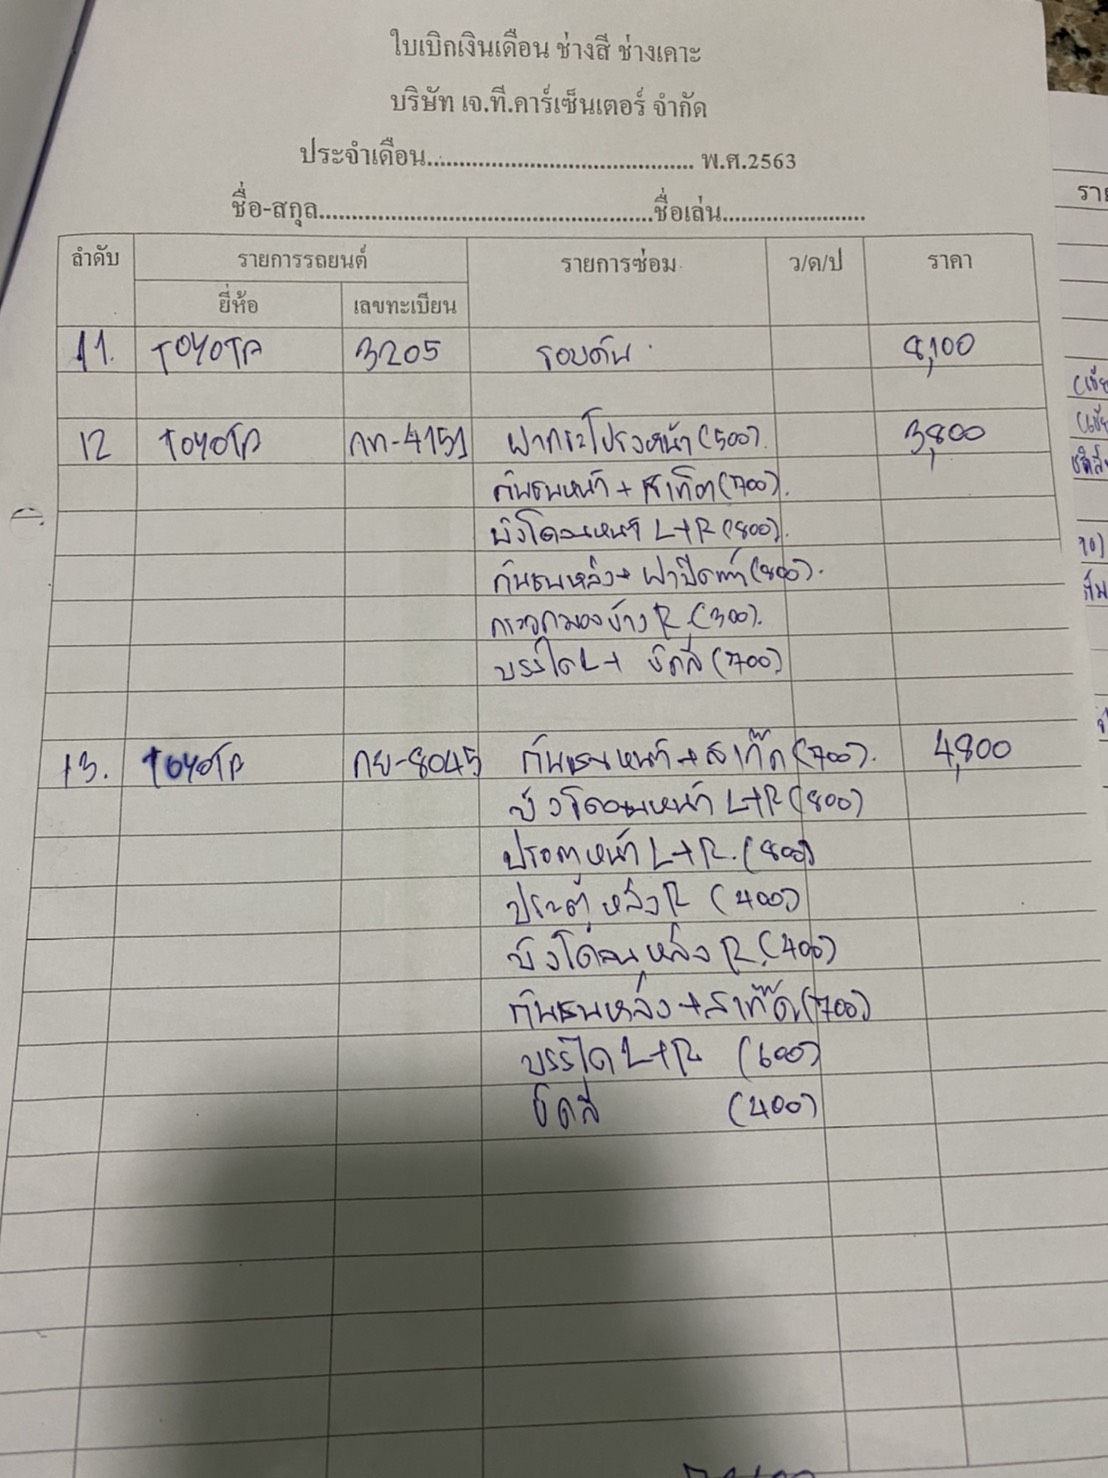 ใบเบิกเงินเดือน ช่างสี ช่างเคาะ
บริษัท เจ.ที.คาร์เซ็นเตอร์ จำกัด
ประจำเดือน........................................ พ.ศ.2563
ชื่อ-สกุล....................................................ชื่อเล่น......................
ลำดับ รายการรถยนต์ รายการซ่อม ว/ด/ป ราคา
ยี่ห้อ เลขทะเบียน
11. TOYOTA 3205 รอบคัน 8,100
12 TOYOTA กท-4151 ฝากระโปรงหน้า (500). 3,800
กันชนหน้า + สเกิ๊ต (700).
บังโคลนหน้า L+R (800).
กันชนหลัง + ฝาปิดท้าย (800).
กระจกมองข้าง R. (300).
บรรได L + ขัดสี (700)
13. TOYOTA กย-8045 กันชนหน้า + สเกิ๊ต (700). 4,800
บังโคลนหน้า L+R (800)
ประตูหน้า L+R. (800)
ประตูหลัง R (400)
บังโคลนหลัง R. (400)
กันชนหลัง + สเกิ๊ต (700)
บรรได L+R (600)
ขัดสี (400)